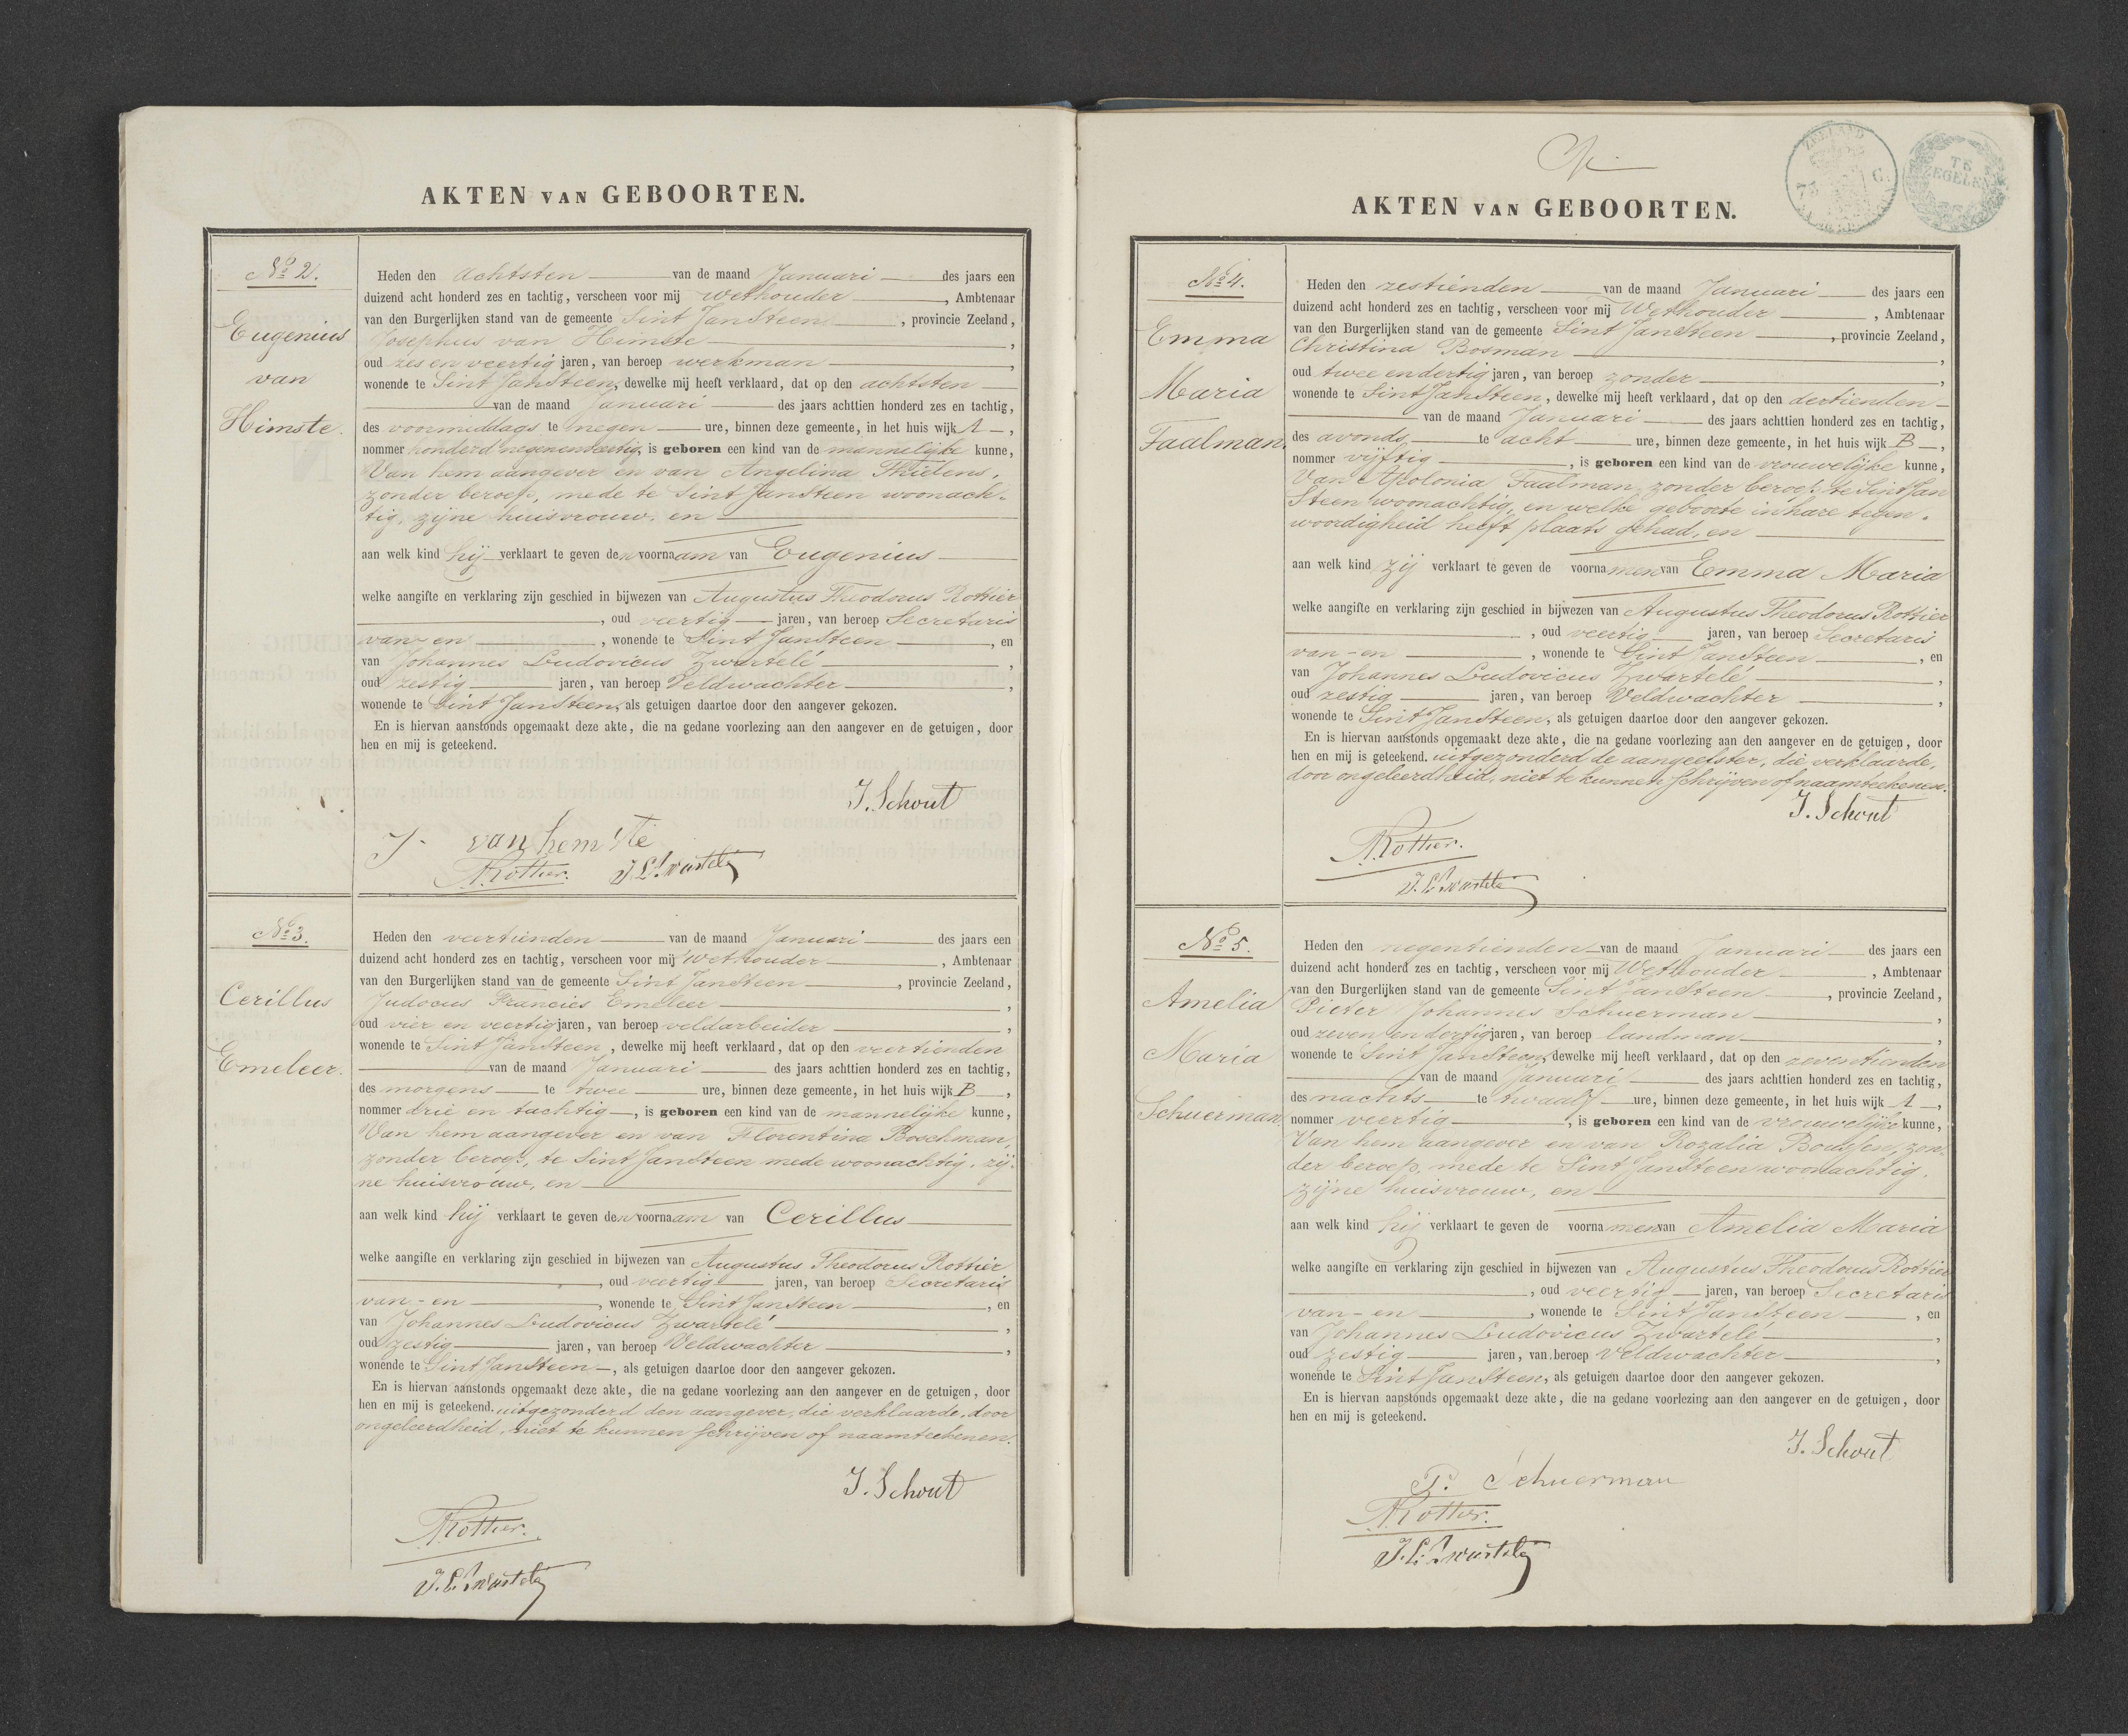 AKTEN VAN GEBOORTEN.
No 2.
Eugenius
van
Himste.
Heden den achtsten van de maand Januari des jaars een
duizend acht honderd zes en tachtig, verscheen voor mij Wethouder, Ambtenaar
van den Burgerlijken stand van de gemeente Sint JanSteen, provincie Zeeland,
Josephus van Himste,
oud zes en veertig jaren, van beroep werkman,
wonende te Sint JanSteen, dewelke mij heeft verklaard, dat op den achtsten
van de maand Januari des jaars achttien honderd zes en tachtig,
des voormiddags te negen ure, binnen deze gemeente, in het huis wijk A,
nommer honderd negenenveertig, is geboren een kind van de mannelijke kunne,
Van hem aangever en van Angelina Thielens,
zonder beroep, mede te Sint JanSteen woonach-
tig, zijne huisvrouw, en
aan welk kind hij verklaart te geven den voornaam van Eugenius
welke aangifte en verklaring zijn geschied in bijwezen van Augustus Theodorus Rottier
, oud veertig jaren, van beroep Secretaris
van - en, wonende te Sint JanSteen, en
van Johannes Ludovicus Zwartelé,
oud zestig jaren, van beroep Veldwachter,
wonende te Sint JanSteen, als getuigen daartoe door den aangever gekozen.
En is hiervan aanstonds opgemaakt deze akte, die na gedane voorlezing aan den aangever en de getuigen, door
hen en mij is geteekend.
J. Schout
J. van hemste
A Rottier. J. L. Zwartelé
No 3.
Cerillus
Emeleer.
Heden den veertienden van de maand Januari des jaars een
duizend acht honderd zes en tachtig, verscheen voor mij Wethouder, Ambtenaar
van den Burgerlijken stand van de gemeente Sint JanSteen, provincie Zeeland,
Judocus Francies Emeleer,
oud vier en veertig jaren, van beroep veldarbeider,
wonende te Sint JanSteen, dewelke mij heeft verklaard, dat op den veertienden
van de maand Januari des jaars achttien honderd zes en tachtig,
des morgens te twee ure, binnen deze gemeente, in het huis wijk B,
nommer drie en tachtig, is geboren een kind van de mannelijke kunne,
Van hem aangever en van Florentina Boschman,
zonder beroep, te Sint JanSteen mede woonachtig, zij-
ne huisvrouw, en
aan welk kind hij verklaart te geven den voornaam van Cerillus
welke aangifte en verklaring zijn geschied in bijwezen van Augustus Theodorus Rottier
, oud veertig jaren, van beroep Secretaris
van - en, wonende te Sint JanSteen, en
van Johannes Ludovicus Zwartelé,
oud zestig jaren, van beroep Veldwachter,
wonende te Sint JanSteen, als getuigen daartoe door den aangever gekozen.
En is hiervan aanstonds opgemaakt deze akte, die na gedane voorlezing aan den aangever en de getuigen, door
hen en mij is geteekend. uitgezonderd den aangever, die verklaarde, door
ongeleerdheid, niet te kunnen schrijven of naamteekenen.
J. Schout
A Rottier.
J. L. Zwartelé
ZEELAND
75 C.
TE
ZEGELEN
AKTEN VAN GEBOORTEN.
No 4.
Emma
Maria
Faalman.
Heden den zestienden van de maand Januari des jaars een
duizend acht honderd zes en tachtig, verscheen voor mij Wethouder, Ambtenaar
van den Burgerlijken stand van de gemeente Sint JanSteen, provincie Zeeland,
Christina Bosman,
oud twee en dertig jaren, van beroep zonder,
wonende te Sint JanSteen, dewelke mij heeft verklaard, dat op den dertienden
van de maand Januari des jaars achttien honderd zes en tachtig,
des avonds te acht ure, binnen deze gemeente, in het huis wijk B,
nommer vijftig, is geboren een kind van de vrouwelijke kunne,
Van Apolonia Faalman, zonder beroep, te Sint Jan
Steen woonachtig, en welke geboorte in hare tegen-
woordigheid heeft plaats gehad, en
aan welk kind zij verklaart te geven de voornamen van Emma Maria
welke aangifte en verklaring zijn geschied in bijwezen van Augustus Theodorus Rottier
, oud veertig jaren, van beroep Secretaris
van - en, wonende te Sint JanSteen, en
van Johannes Ludovicus Zwartelé,
oud zestig jaren, van beroep Veldwachter,
wonende te Sint JanSteen, als getuigen daartoe door den aangever gekozen.
En is hiervan aanstonds opgemaakt deze akte, die na gedane voorlezing aan den aangever en de getuigen, door
hen en mij is geteekend. uitgezonderd de aangeefster, die verklaarde,
door ongeleerdheid, niet te kunnen schrijven of naamteekenen.
J. Schout
A Rottier.
J. L. Zwartelé
No 5.
Amelia
Maria
Schuerman.
Heden den negentienden van de maand Januari des jaars een
duizend acht honderd zes en tachtig, verscheen voor mij Wethouder, Ambtenaar
van den Burgerlijken stand van de gemeente Sint JanSteen, provincie Zeeland,
Pieter Johannes Schuerman,
oud zeven en dertig jaren, van beroep landman,
wonende te Sint JanSteen, dewelke mij heeft verklaard, dat op den zeventienden
van de maand Januari des jaars achttien honderd zes en tachtig,
des nachts te twaalf ure, binnen deze gemeente, in het huis wijk A,
nommer veertig, is geboren een kind van de vrouwelijke kunne,
Van hem aangever en van Rozalia zon-
der beroep, mede te Sint JanSteen woonachtig,
zijne huisvrouw, en
aan welk kind hij verklaart te geven de voornamen van Amelia Maria
welke aangifte en verklaring zijn geschied in bijwezen van Augustus Theodorus Rottier
, oud veertig jaren, van beroep Secretaris
van - en, wonende te Sint JanSteen, en
van Johannes Ludovicus Zwartelé,
oud zestig jaren, van beroep Veldwachter,
wonende te Sint JanSteen, als getuigen daartoe door den aangever gekozen.
En is hiervan aanstonds opgemaakt deze akte, die na gedane voorlezing aan den aangever en de getuigen, door
hen en mij is geteekend.
J. Schout
P. Schuerman
A Rottier.
J. L. Zwartelé